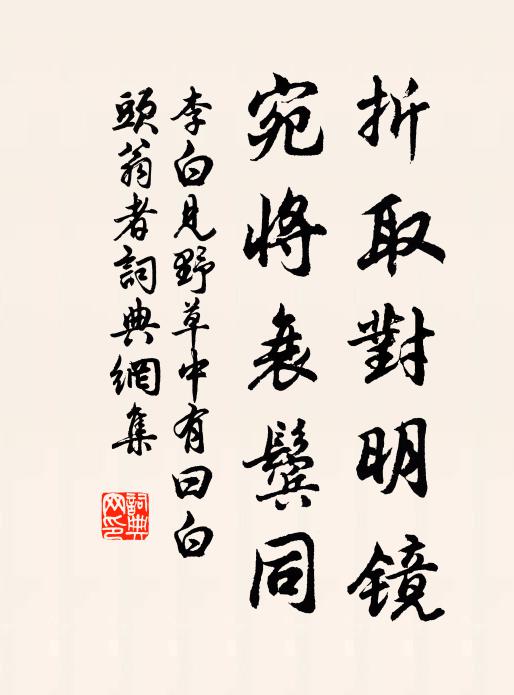 折取對明鏡
宛將衰鬢同
李白見野草中有曰白
頭翁者詞典網集
詞典
网印